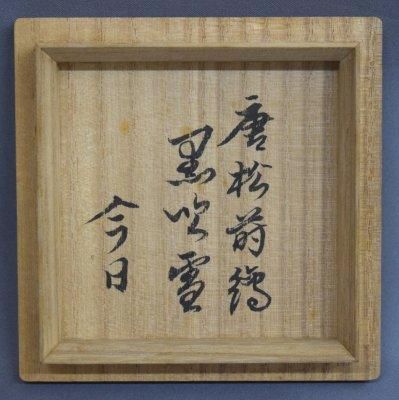 唐松蒔絵
黒吹雪
今日